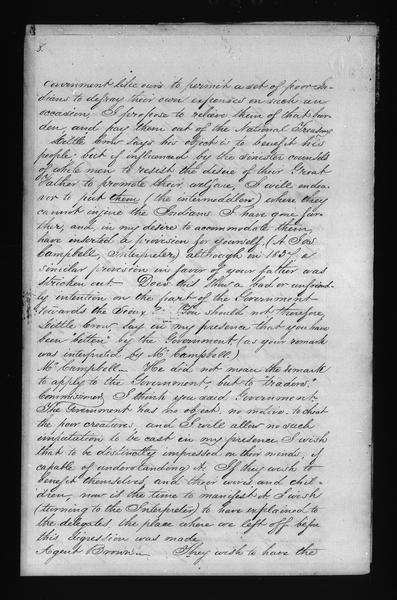 8.
Government like ours to permit a set of poor In-
dians to defray their own expenses on such an
occasion, I propose to relieve them of that bur-
den, and pay them out of the National Treasury
Little Crow says his object is to benefit his
people; but if influenced by the sinister counsels
of white men to resist the desire of their Great
Father to promote their welfare, I will endea-
vor to put them (the intermeddlers) where they
cannot injure the Indians. I have gone fur-
ther, and, in my desire to accommodate them,
have inserted a provision for yourself, (A. Scott
Campbell, Interpreter) although in 1837, a
similar provision in favor of your father was
stricken out. Does this show a bad or unfriend-
ly intention on the part of the Government
towards the Sioux? You should not therefore,
Little Crow, say in my presence that you have
been bitten by the Government (as your remark
was interpreted by Mr. Campbell.)
Mr. Campbell — He did not mean the remark
to apply to the Government, but to Traders.
Commissioner, I think you said Government.
The Government has no object, no motive to cheat
the poor creatures, and I will allow no such
imputation to be cast in my presence. I wish
that to be distinctly impressed on their minds, if
capable of understanding it. If they wish to
benefit themselves, and their wives and chil-
dren, now is the time to manifest it. I wish
(turning to the Interpreter) to have explained to
the delegates, the place where we left off before
this digression was made.
Agent Brown — They wish to have the